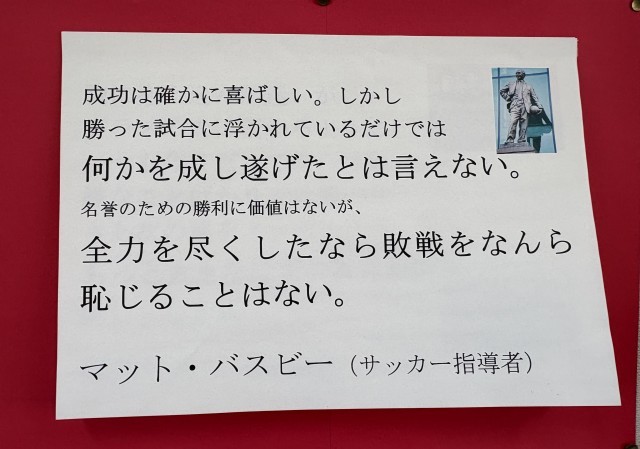 成功は確かに喜ばしい。しかし
勝った試合に浮かれているだけでは
何かを成し遂げたとは言えない。
名誉のための勝利に価値はないが、
全力を尽くしたなら敗戦をなんら
恥じることはない。
マット・バスビー（サッカー指導者）